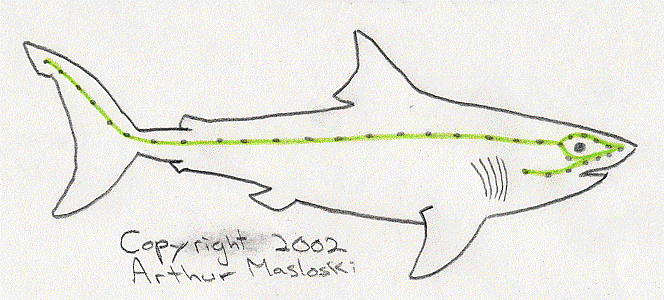 Copyright 2002
Arthur Masloski